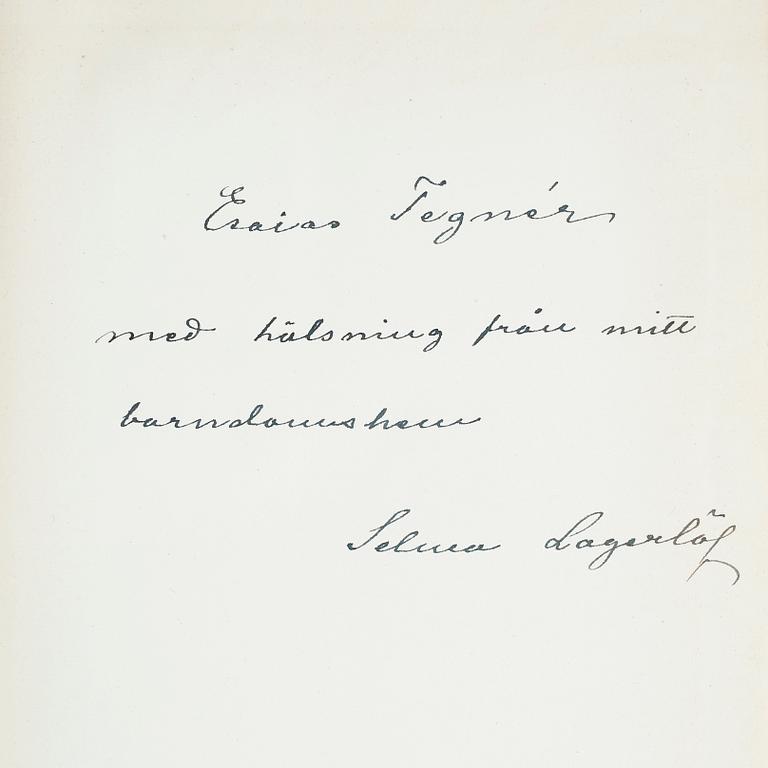 Esaias Tegnér
med hälsning från mitt
barndomshem
Selma Lagerlöf